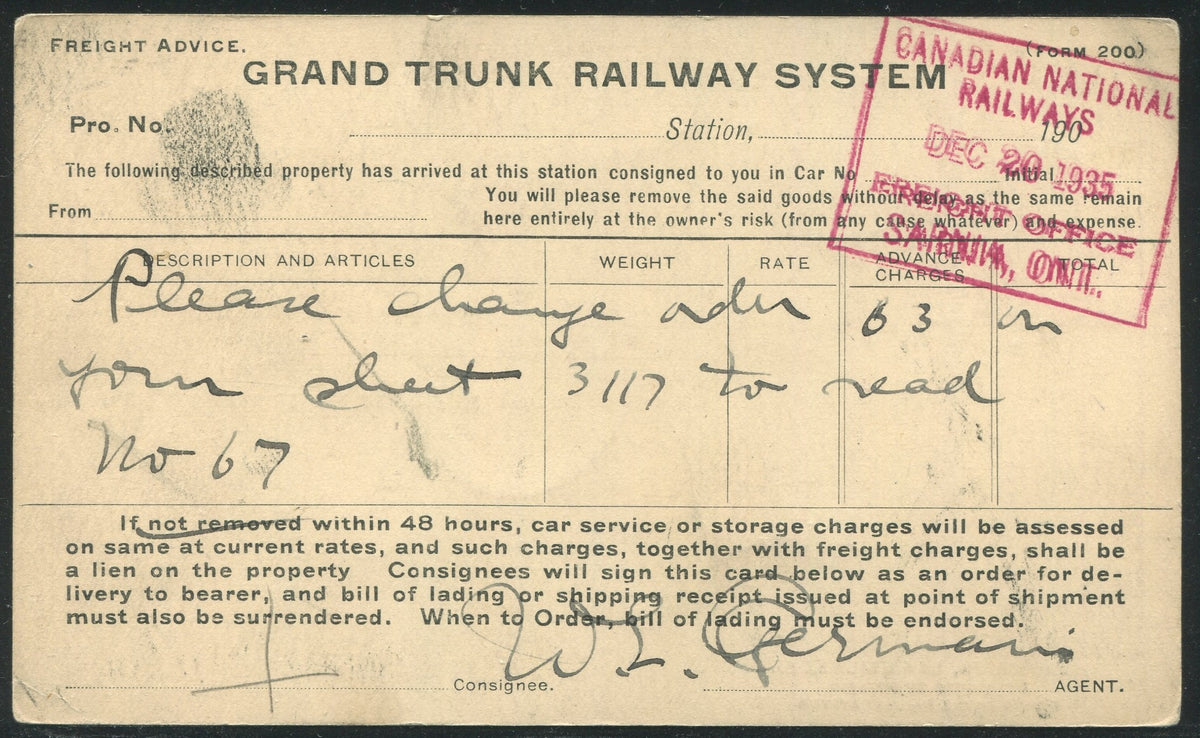 FREIGHT ADVICE.
(FORM 200)
GRAND TRUNK RAILWAY SYSTEM
Pro. No.
Station, 190
The following described property has arrived at this station consigned to you in Car No Initial
From
You will please remove the said goods without delay as the same remain
here entirely at the owner's risk (from any cause whatever) and expense.
CANADIAN NATIONAL
RAILWAYS
DEC 20 1935
FREIGHT OFFICE
SARNIA, ONT.
DESCRIPTION AND ARTICLES WEIGHT RATE ADVANCE CHARGES TOTAL
Please change order 63 on
your sheet 3117 to read
No 67
If not removed within 48 hours, car service or storage charges will be assessed
on same at current rates, and such charges, together with freight charges, shall be
a lien on the property Consignees will sign this card below as an order for de-
livery to bearer, and bill of lading or shipping receipt issued at point of shipment
must also be surrendered. When to Order, bill of lading must be endorsed.
Consignee. AGENT.